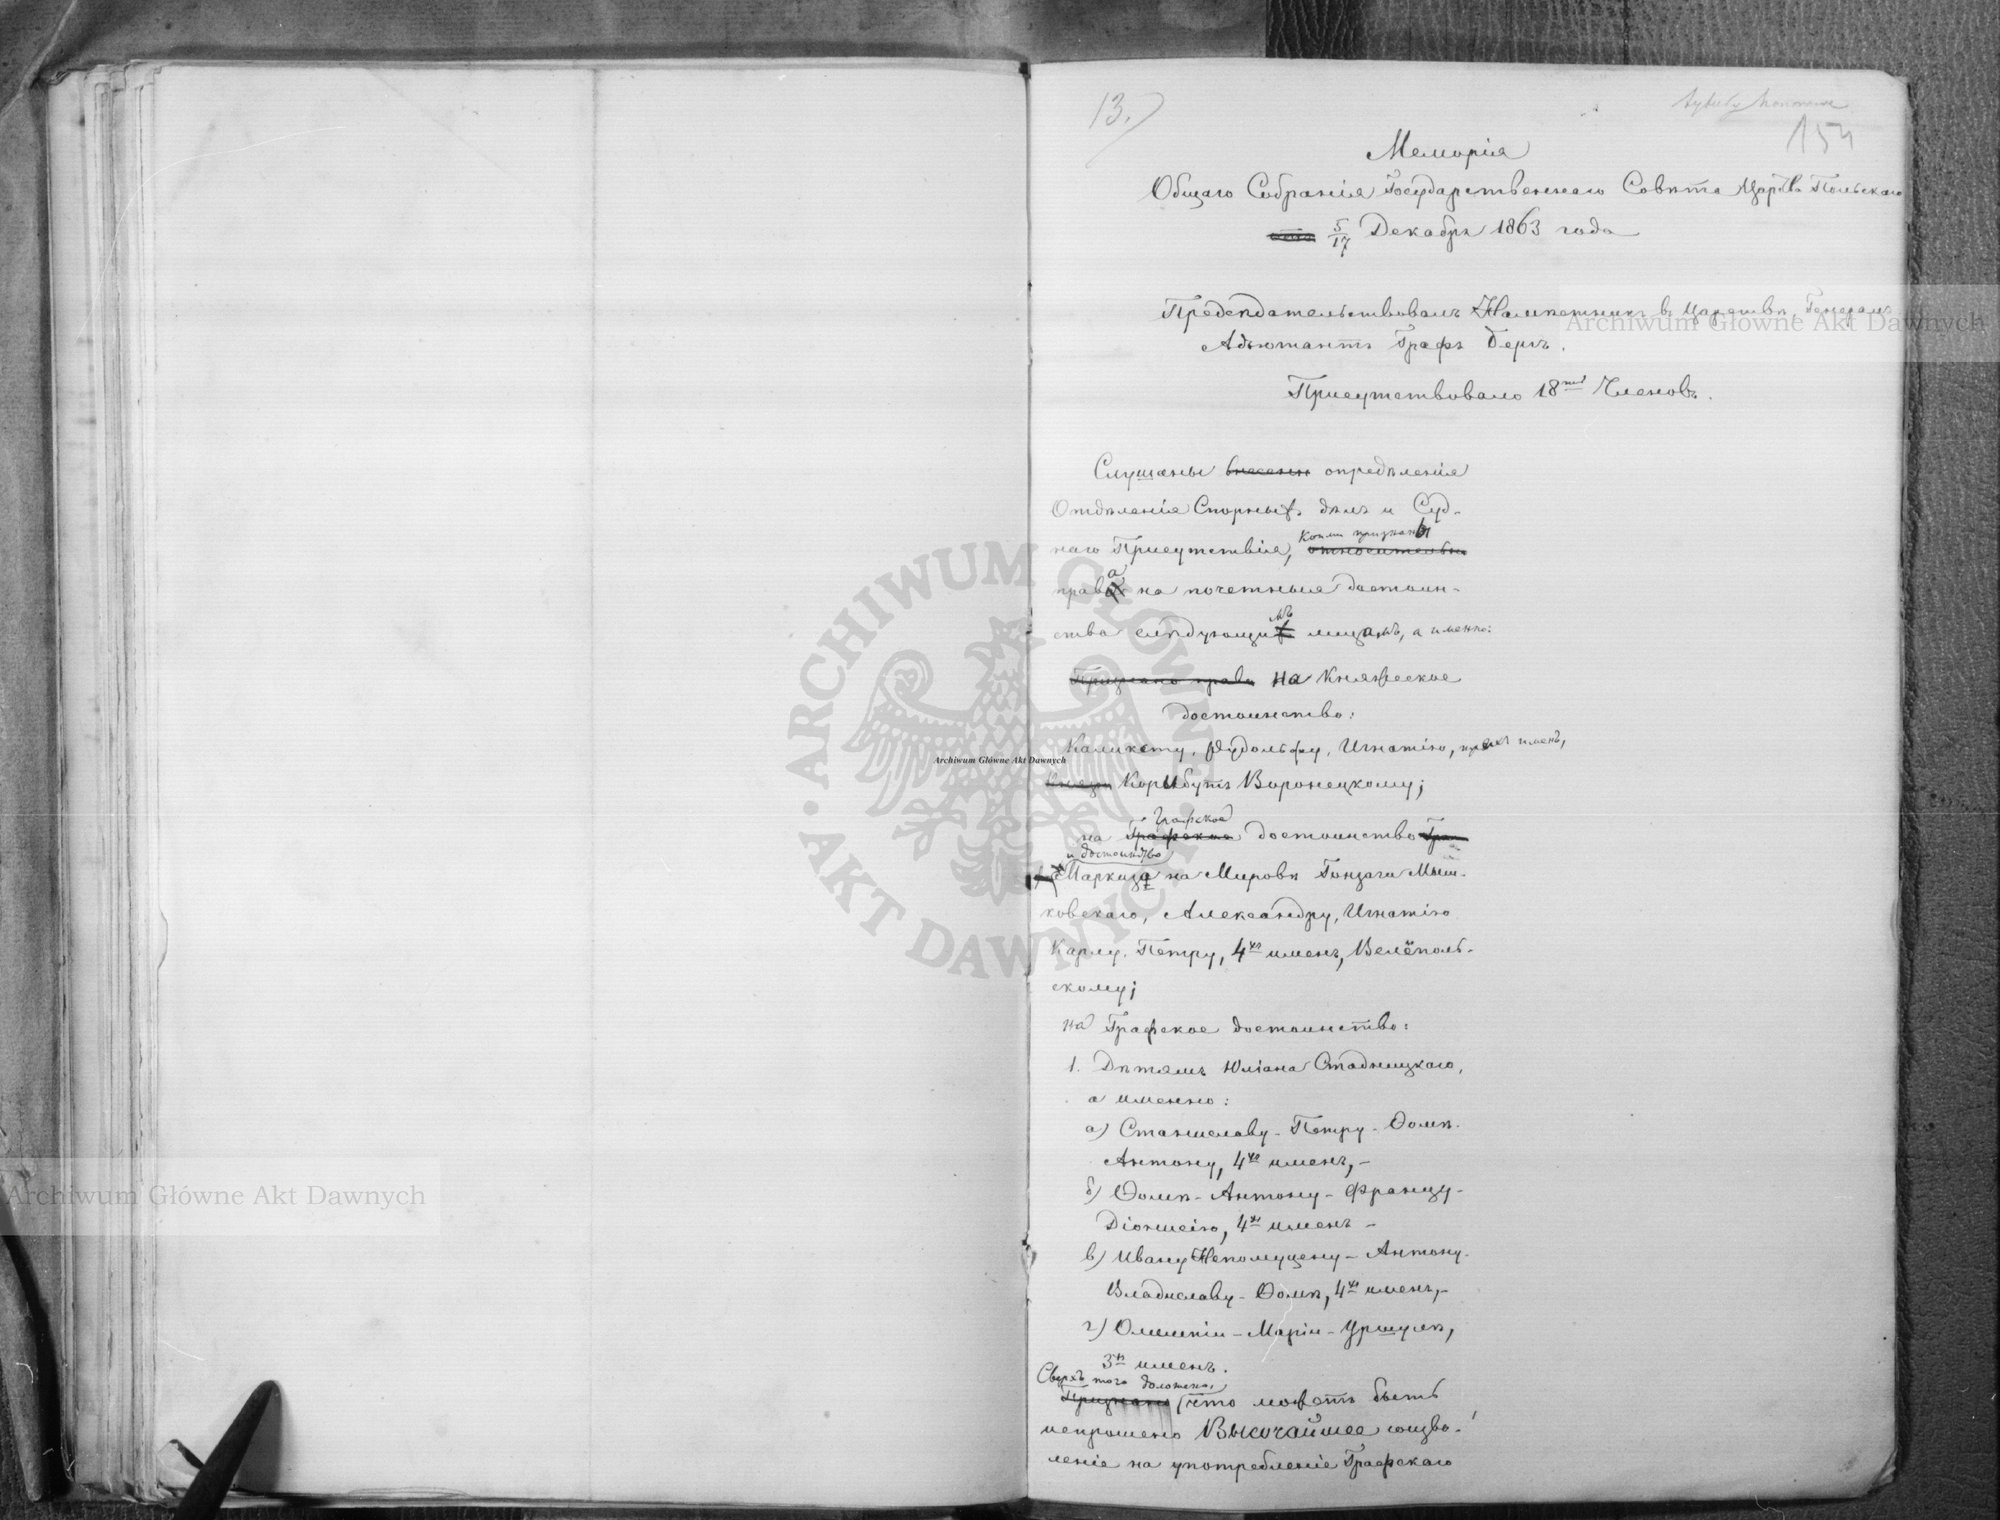 13.)
154
Меморія
Общаго Собранія Государственнаго Совѣта Царства Польскаго
5/17 Декабря 1863 года
Предсѣдательствовалъ Намѣстникъ въ Царствѣ, Генералъ
Адъютантъ Графъ Бергъ.
Присутствовало 18ть Членовъ.
Слушаны внесены опредѣленія
Отдѣленія Спорныхъ дѣлъ и Суд-
наго Присутствія, относительно
коими признаны
права на почетныя достоин-
ства слѣдующимъ лицамъ, а именно:
Признано право на Княжеское
достоинство:
Каликсту, Рудольфу, Игнатію, трехъ именъ,
князю Корибутъ Воронецкому;
Графское
на Графское достоинство
и достоинство
Маркиза на Мировѣ Гонзаги Мыш-
ковскаго, Александру, Игнатію
Карлу, Петру, 4хъ именъ, Велёполь-
скому;
на Графское достоинство:
1. Дѣтямъ Юліана Стадницкаго,
а именно:
а) Станиславу-Петру-Ѳомѣ-
Антону, 4хъ именъ,-
б) Ѳомѣ-Антону-Францу-
Діонисію, 4хъ именъ-
в) Ивану Непомуцену-Антону-
Владиславу-Ѳомѣ, 4хъ именъ,-
г) Олимпіи-Маріи-Уршулѣ,
3хъ именъ.
Сверхъ того доложено,
Признано что можетъ быть
испрошено Высочайшее соизво-
леніе на употребленіе Графскаго
Archiwum Główne Akt Dawnych
Archiwum Główne Akt Dawnych
Archiwum Główne Akt Dawnych
ARCHIWUM GŁÓWNE AKT DAWNYCH